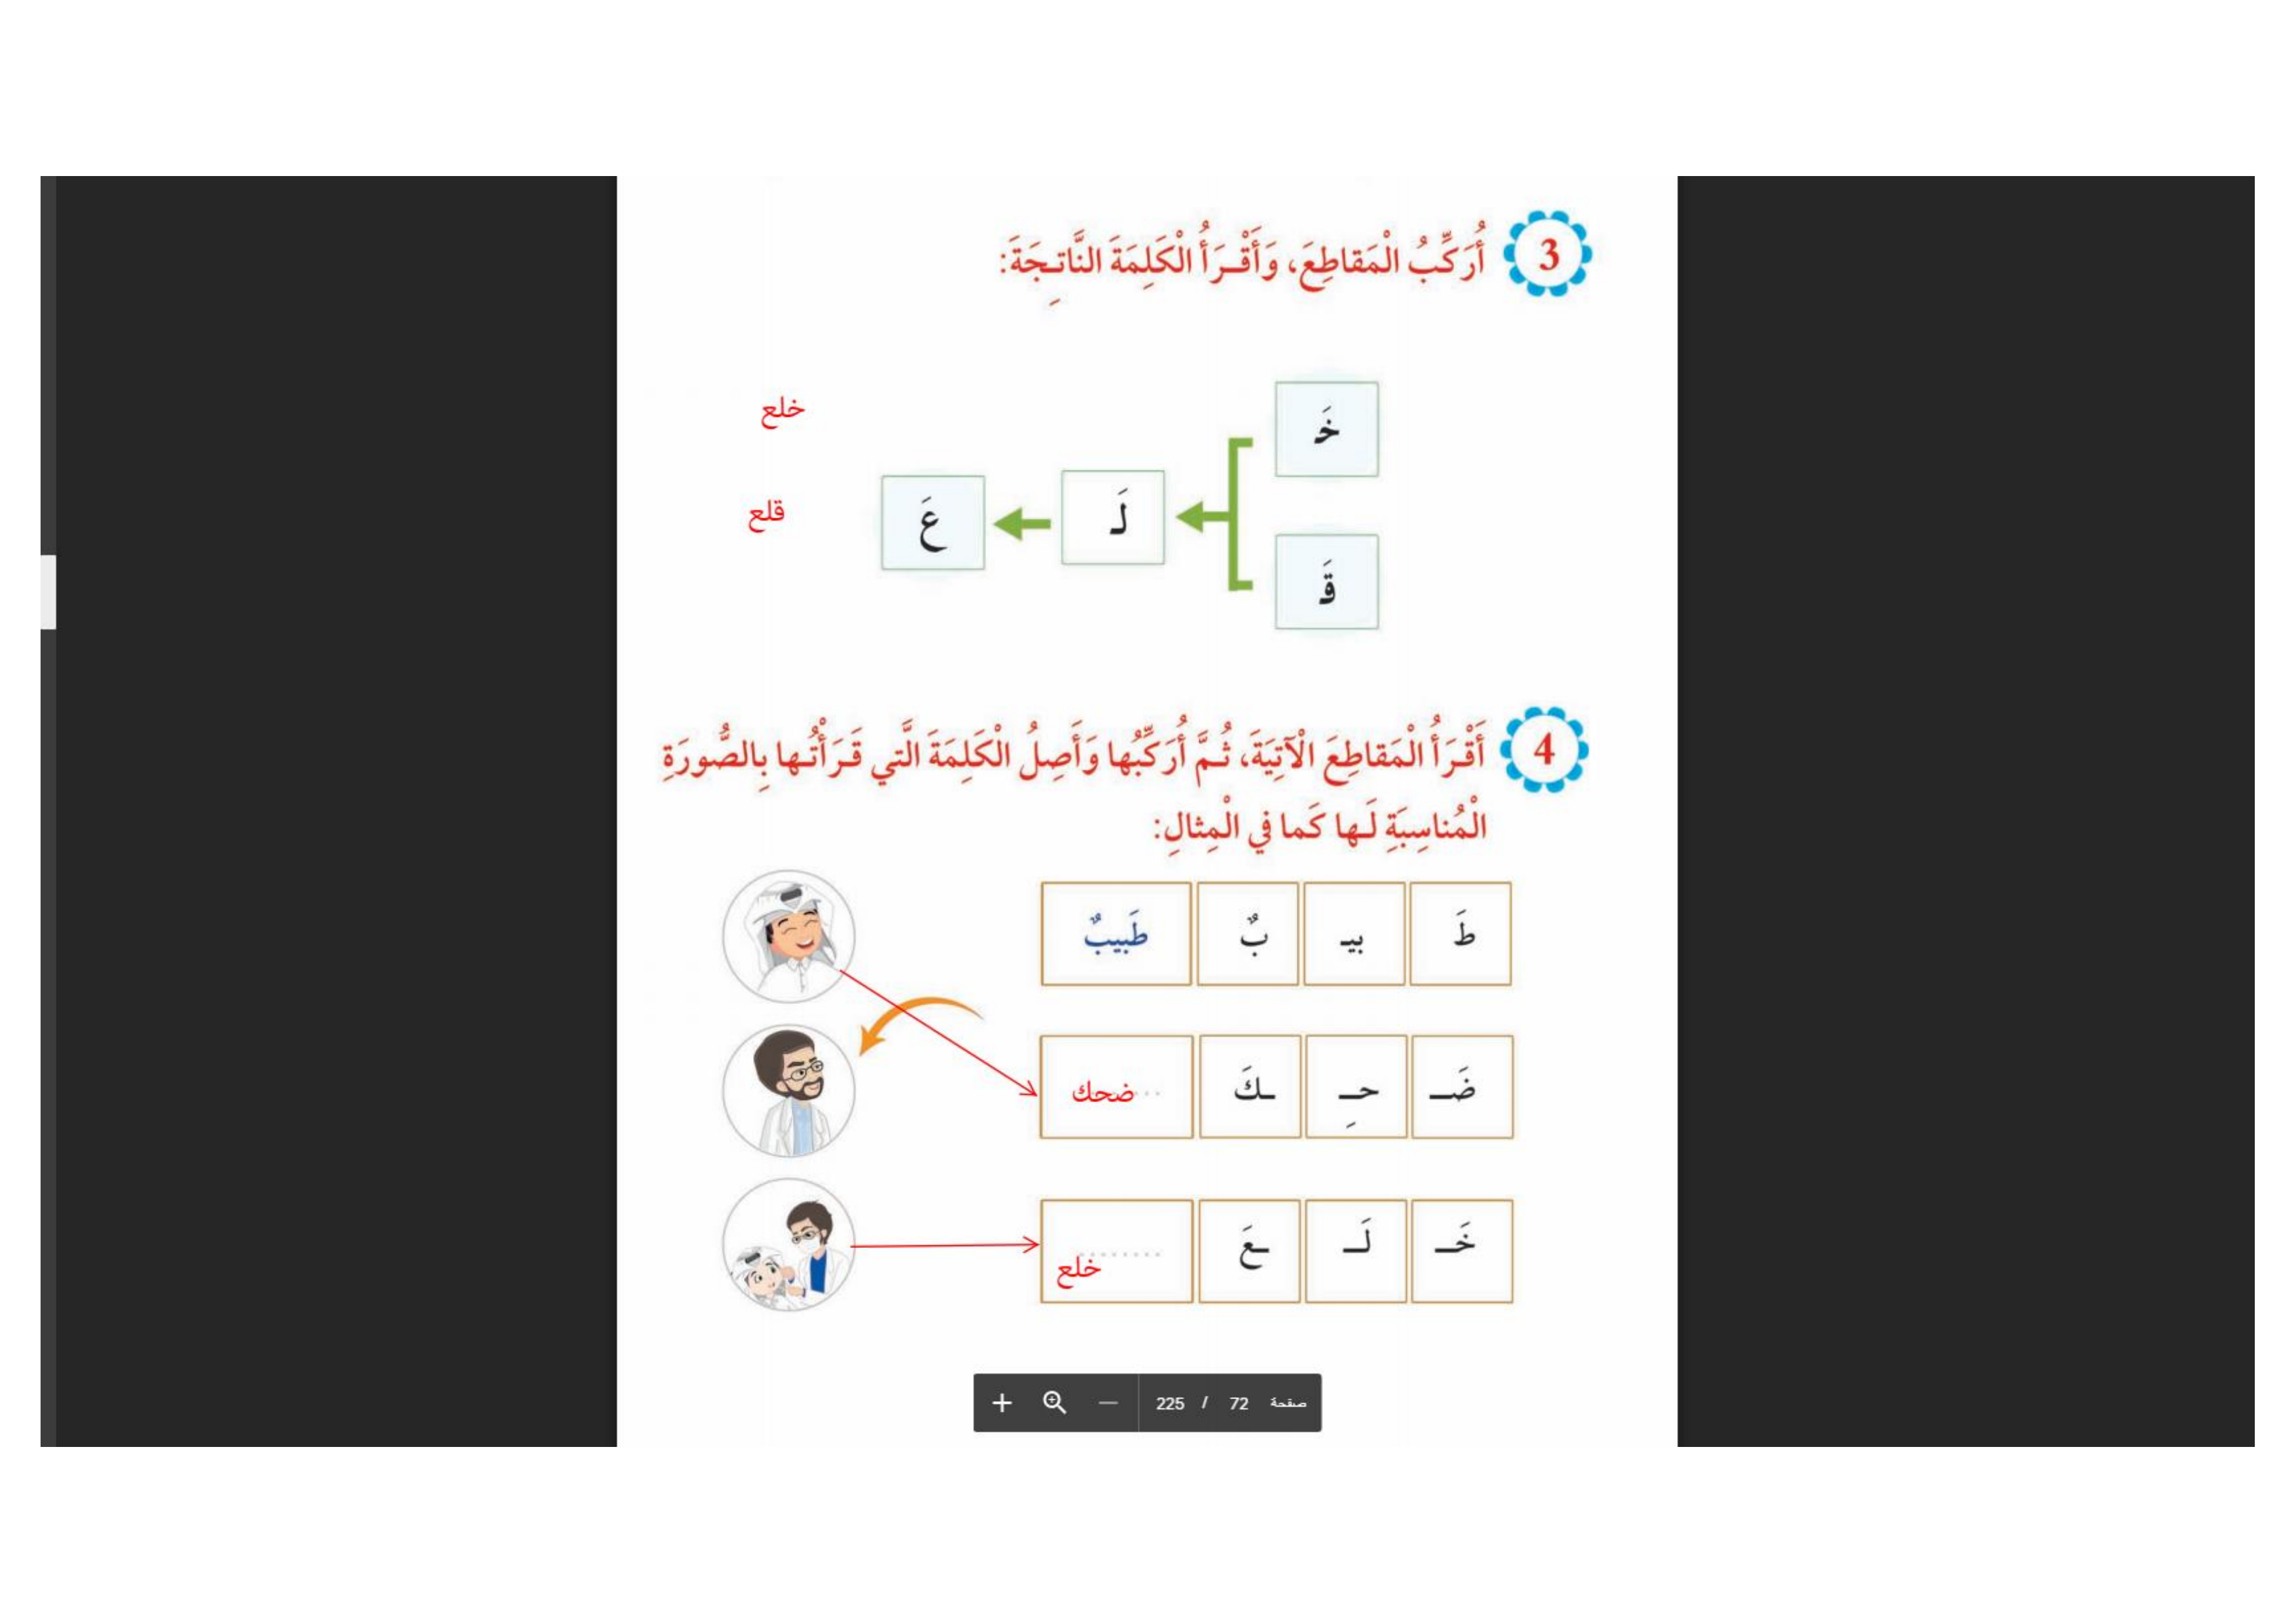 3 أُرَكِّبُ الْمَقاطِعَ، وَأَقْـرَأُ الْكَلِمَةَ النَّاتـِجَةَ:
خَـ
خلع
عَ لَـ
قلع
قَـ
4 أَقْـرَأُ الْمَقاطِعَ الْآتِيَةَ، ثُـمَّ أُرَكِّبُها وَأَصِلُ الْكَلِمَةَ الَّتي قَـرَأْتُـها بِالصُّورَةِ
الْمُناسِبَةِ لَـها كَما في الْمِثالِ:
طَ بيـ بٌ طَبيبٌ
ضَـ حِـ ـكَ ضحك
خَـ لَـ ـعَ خلع
صفحة 72 / 225